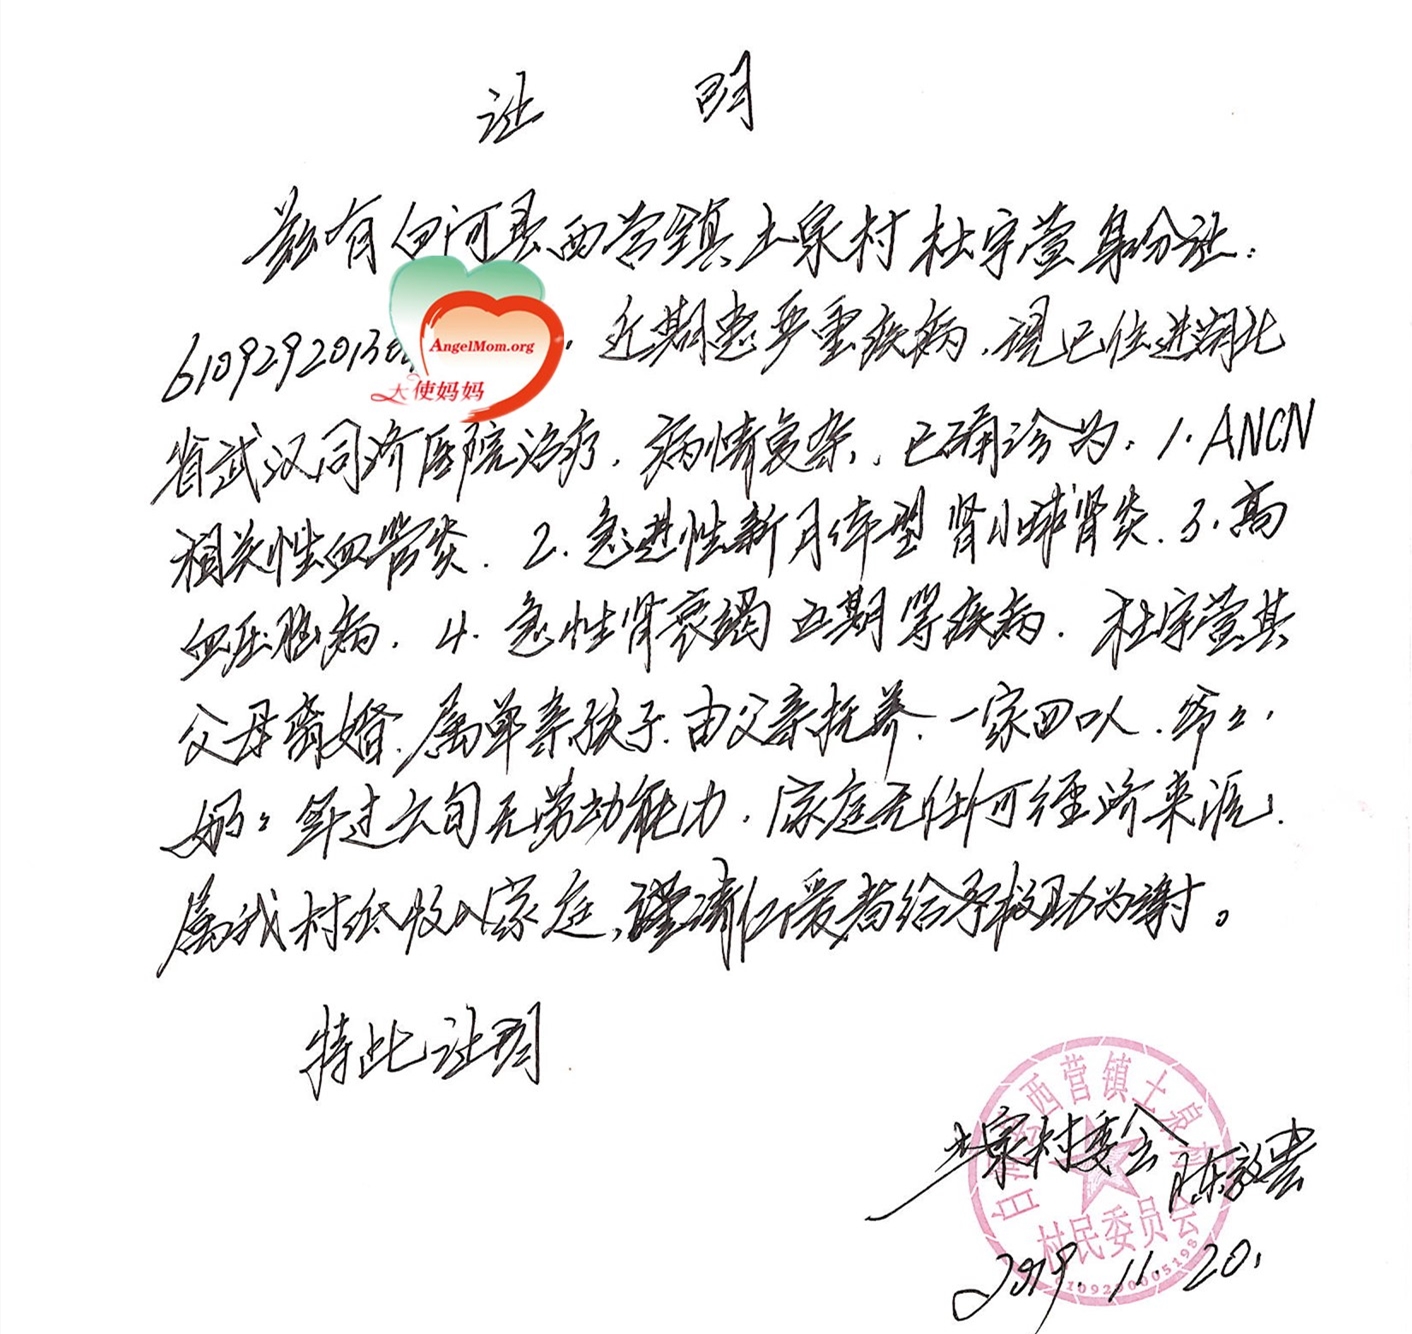 证 明
兹有白河县西营镇土泉村杜宇萱身份证:
61092920130
AngelMom.org
天使妈妈
近期患严重疾病,现已住进湖北
省武汉同济医院治疗,病情复杂,已确诊为:1.ANCN
相关性血管炎.2.急进性新月体型肾小球肾炎.3.高
血压脑病.4.急性肾衰竭五期等疾病.杜宇萱其
父母离婚.属单亲孩子.由父亲抚养.一家四口人.爷々.
奶々年过六旬无劳动能力.家庭无任何经济来源.
属我村低收入家庭,谨请仁爱者给予救助为谢。
特此证明
土泉村委会 陈
2019.11.20.
白河县西营镇土泉村
村民委员会